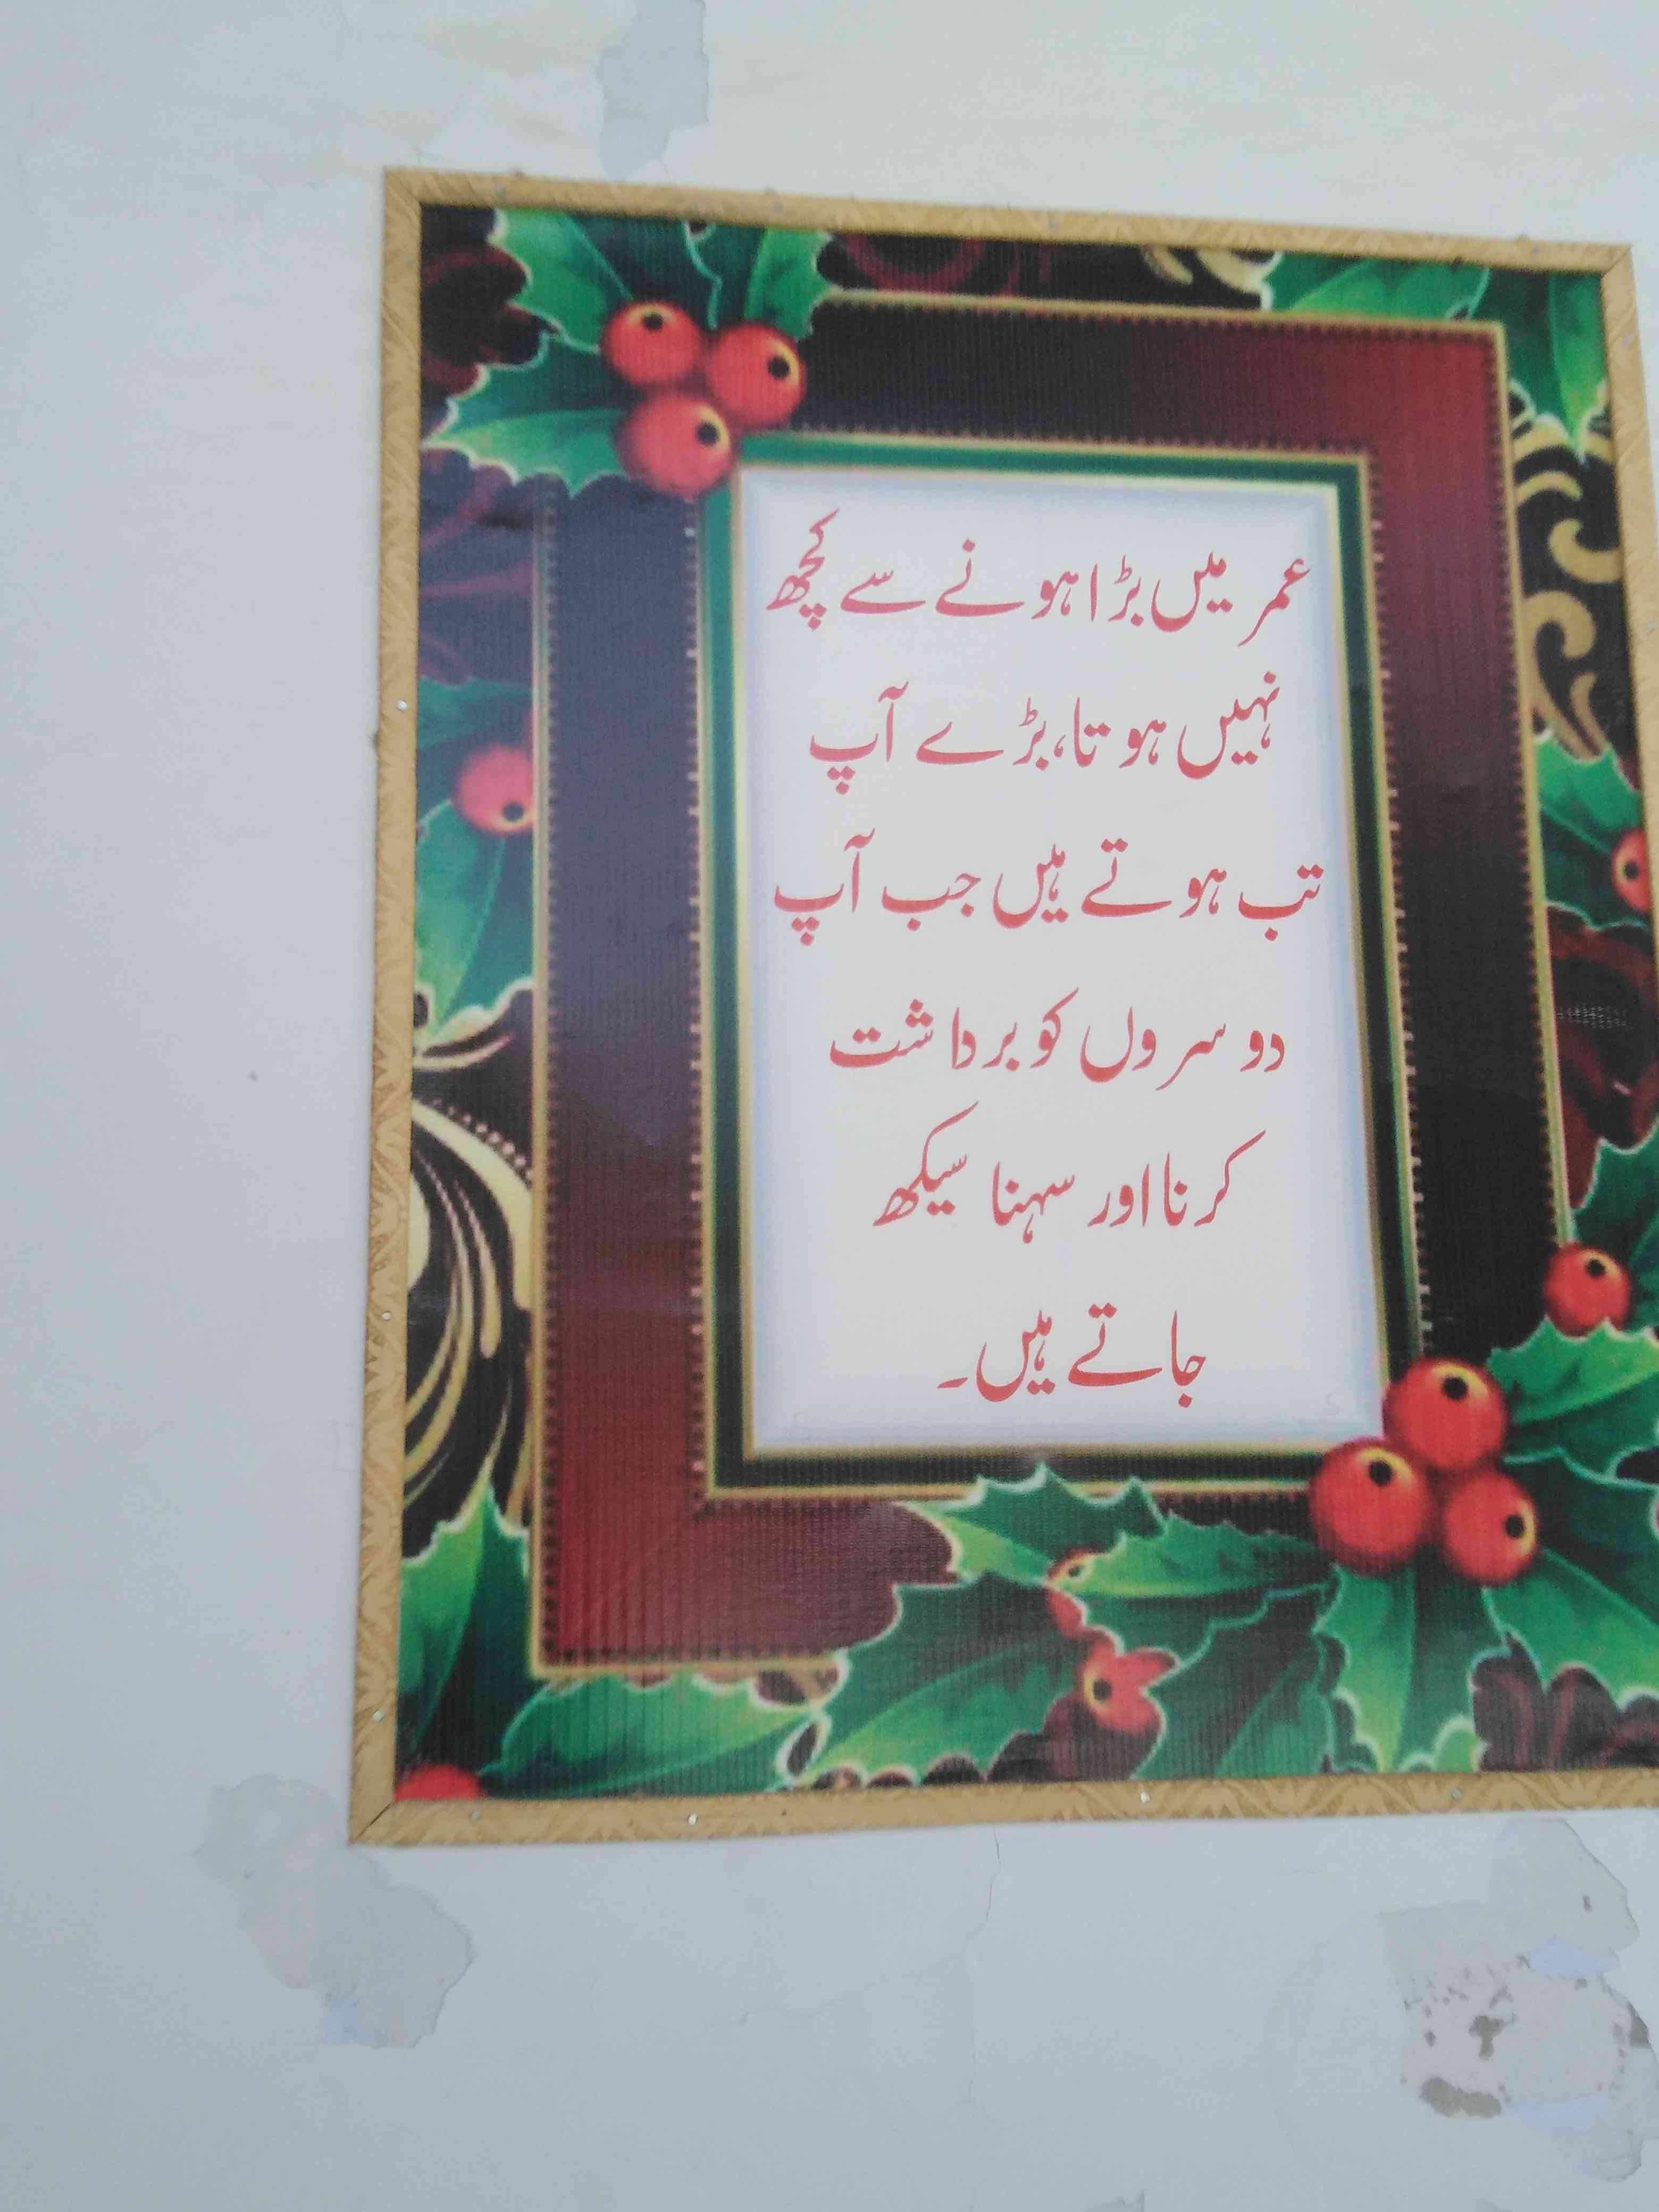 عمر میں بڑا ہونے سے کچھ
نہیں ہوتا، بڑے آپ
تب ہوتے ہیں جب آپ
دوسروں کو برداشت
کرنا اور سہنا سیکھ
جاتے ہیں۔